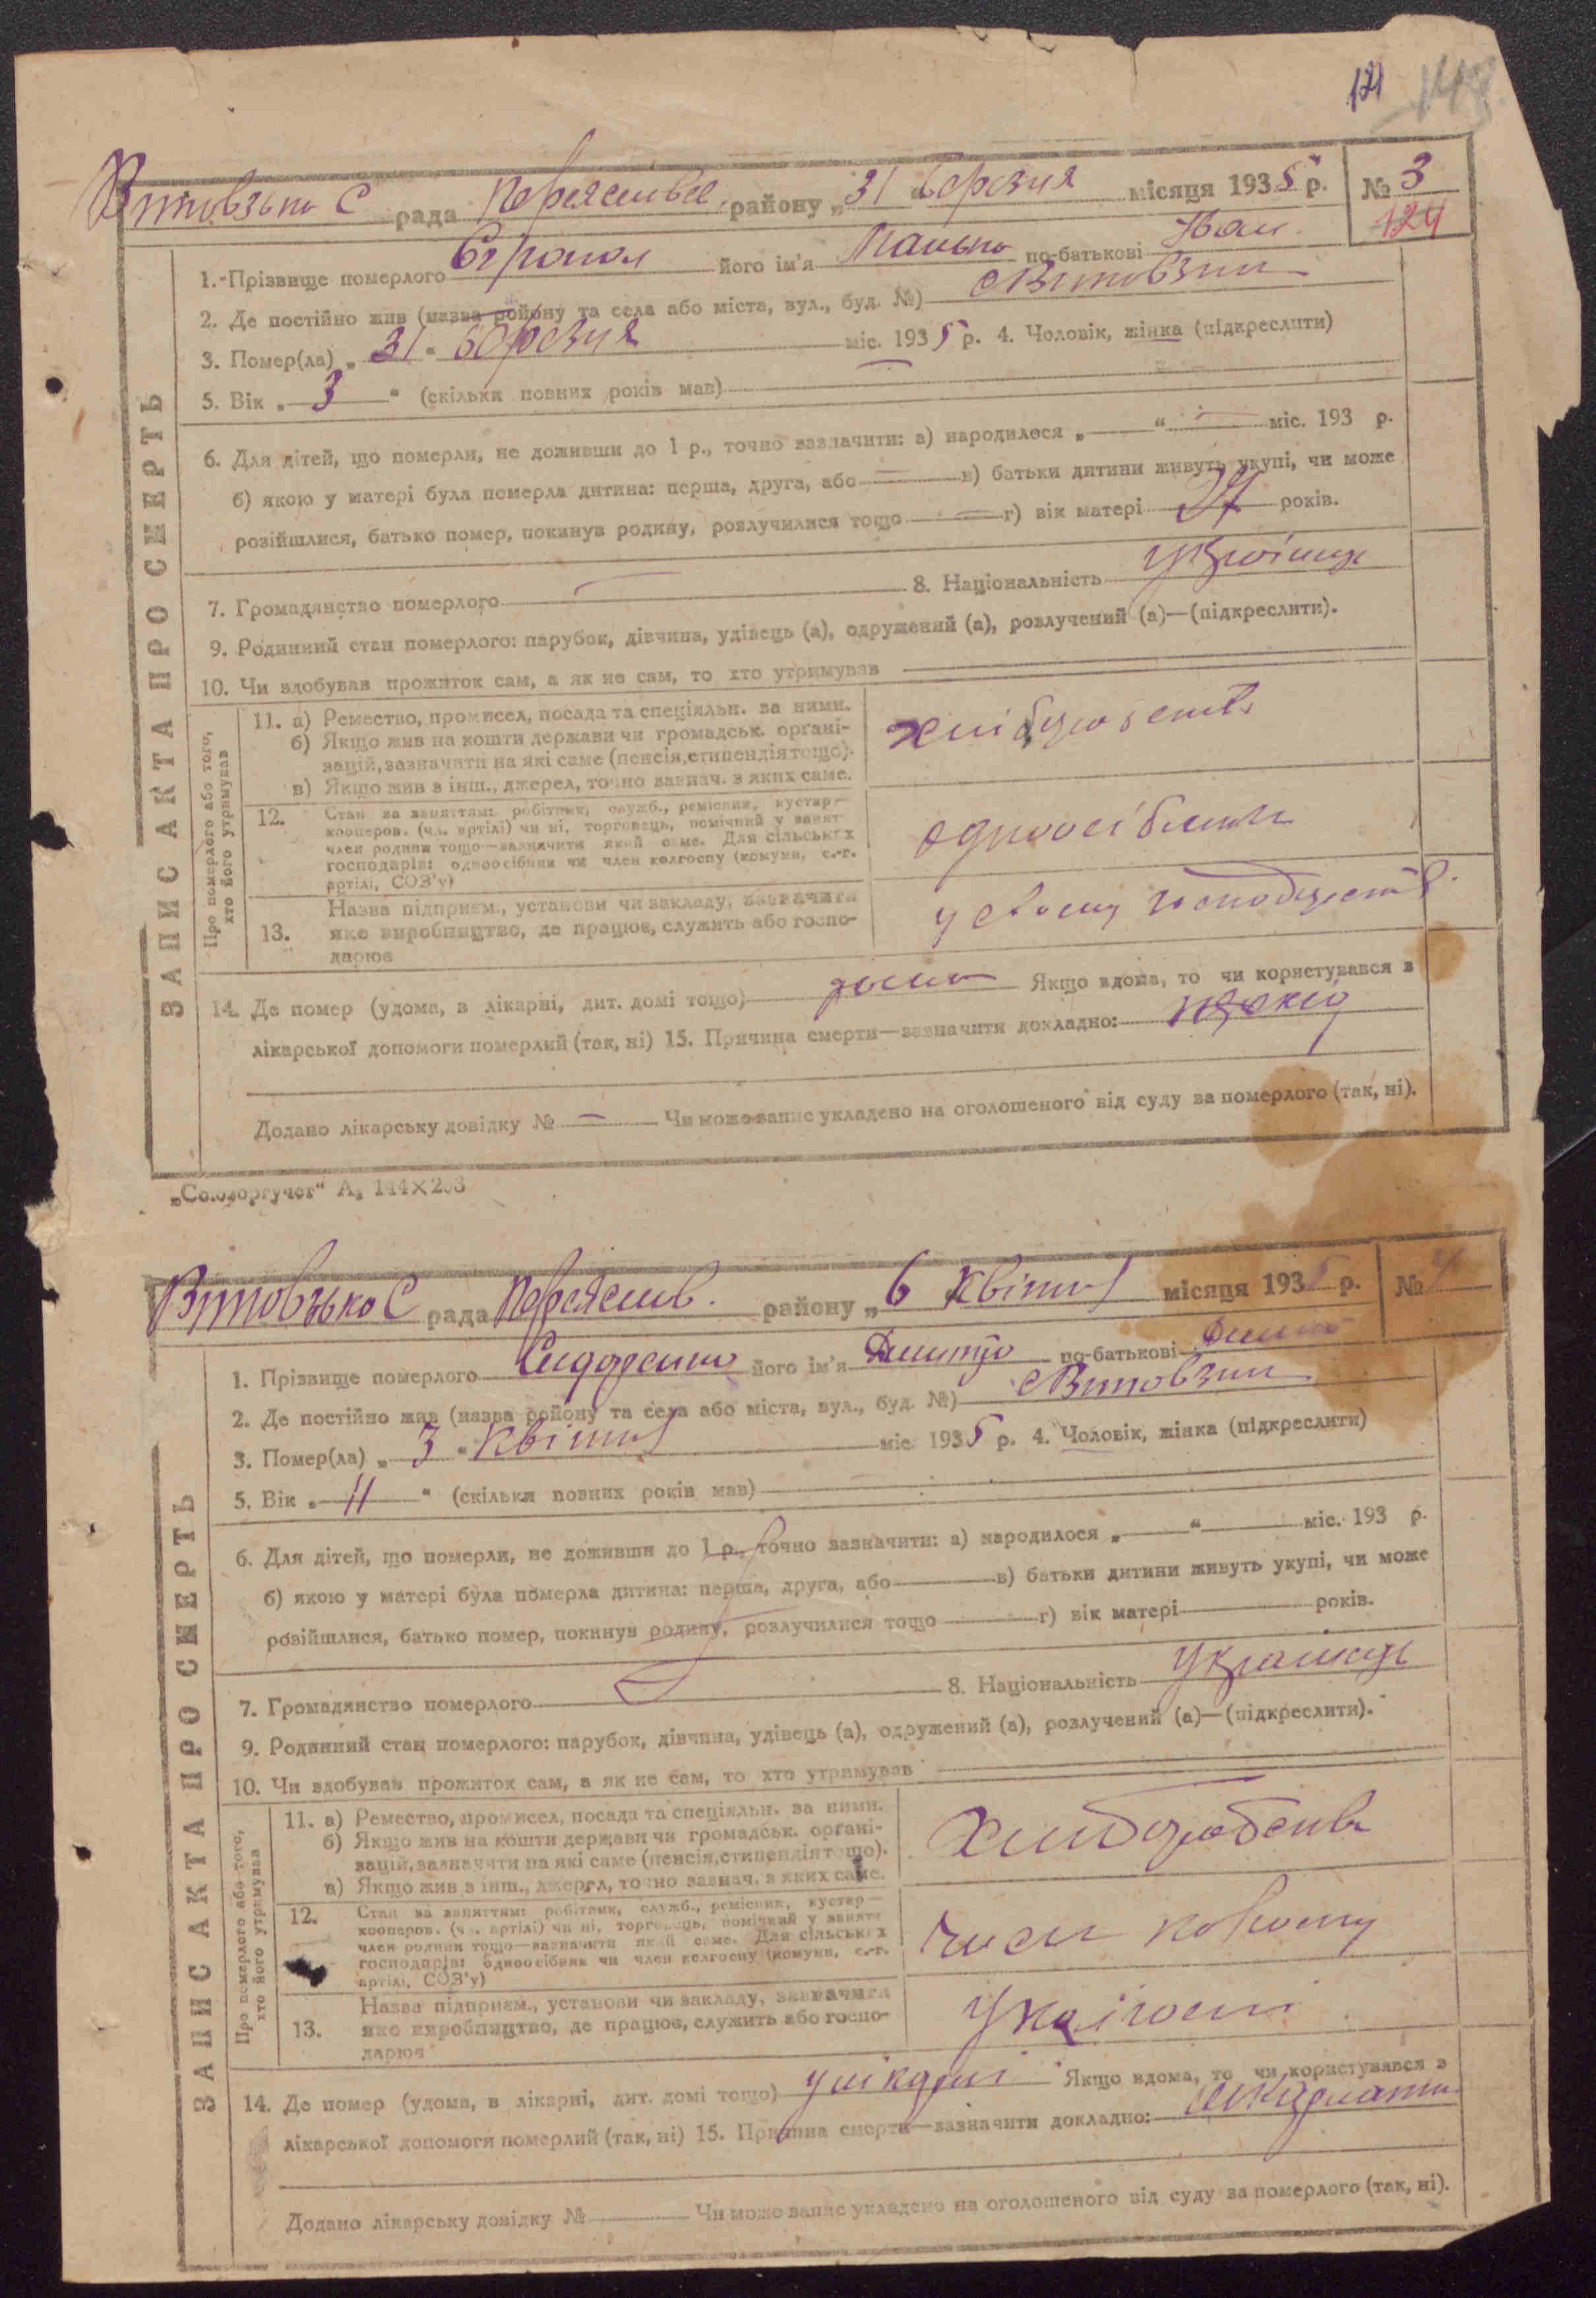 121 149
Витовзька С рада Переяслівс. району „31 березня місяця 1935 р. № 3
124
1. Прізвище померлого його ім'я по-батькові Іван
2. Де постійно жив (назва району та села або міста, вул., буд. №) с Витовзки
3. Помер(ла) „31“ березня міс. 1935 р. 4. Чоловік, жінка (підкреслити)
5. Вік „3“ (скільки повних років мав)
6. Для дітей, що померли, не доживши до 1 р., точно зазначити: а) народилося „ “ міс. 193 р.
б) якою у матері була померла дитина: перша, друга, або в) батьки дитини живуть укупі, чи може
розійшлися, батько помер, покинув родину, розлучилися тощо г) вік матері років.
7. Громадянство померлого 8. Національність
9. Родинний стан померлого: парубок, дівчина, удівець (а), одружений (а), розлучений (а)—(підкреслити).
10. Чи здобував прожиток сам, а як не сам, то хто утримував
ЗАПИС АКТА ПРО СМЕРТЬ
Про померлого або того, хто його утримував
11. а) Ремество, промисел, посада та спеціяльн. за ними.
б) Якщо жив на кошти держави чи громадськ. органі-
зацій, зазначити на які саме (пенсія, стипендія тощо).
в) Якщо жив з інш., джерел, точно зазнач. з яких саме.
хліборобств
12. Стан за заняттям: робітник, служб., ремісник, кустар—
кооперов. (чл. артілі) чи ні, торговець, помічний у занят
член родини тощо—зазначити який саме. Для сільських
господарів: одноосібник чи член колгоспу (комуни, с.-г.
артілі, СОЗ'у)
одноосібник
13. Назва підприєм., установи чи закладу, зазначити
яке виробництво, де працює, служить або госпо-
дарює
у своєму господарстві
14. Де помер (удома, в лікарні, дит. домі тощо) дома Якщо вдома, то чи користувався з
лікарської допомоги померлий (так, ні) 15. Причина смерти—зазначити докладно:
Додано лікарську довідку № — Чи може запис укладено на оголошеного від суду за померлого (так, ні).
„Союзоргучет“ А₅ 144×203
Витовзька С рада Переяслив. району „6 Квітня місяця 1935 р. № 4
1. Прізвище померлого Сидоренко його ім'я Дмитро по-батькові
2. Де постійно жив (назва району та села або міста, вул., буд. №) с Витовзки
3. Помер(ла) „3“ Квітня міс. 1935 р. 4. Чоловік, жінка (підкреслити)
5. Вік „11“ (скільки повних років мав)
6. Для дітей, що померли, не доживши до 1 р., точно зазначити: а) народилося „ “ міс. 193 р.
б) якою у матері була померла дитина: перша, друга, або в) батьки дитини живуть укупі, чи може
розійшлися, батько помер, покинув родину, розлучилися тощо г) вік матері років.
7. Громадянство померлого 8. Національність Українець
9. Родинний стан померлого: парубок, дівчина, удівець (а), одружений (а), розлучений (а)—(підкреслити).
10. Чи здобував прожиток сам, а як не сам, то хто утримував
ЗАПИС АКТА ПРО СМЕРТЬ
Про померлого або того, хто його утримував
11. а) Ремество, промисел, посада та спеціяльн. за ними.
б) Якщо жив на кошти держави чи громадськ. органі-
зацій, зазначити на які саме (пенсія, стипендія тощо).
в) Якщо жив з інш., джерел, точно зазнач. з яких саме.
Хліборобств
12. Стан за заняттям: робітник, служб., ремісник, кустар—
кооперов. (чл. артілі) чи ні, торговець, помічний у занят
член родини тощо—зазначити який саме. Для сільських
господарів: одноосібник чи член колгоспу (комуни, с.-г.
артілі, СОЗ'у)
член
13. Назва підприєм., установи чи закладу, зазначити
яке виробництво, де працює, служить або госпо-
дарює
У колгоспі
14. Де помер (удома, в лікарні, дит. домі тощо) у лікарні Якщо вдома, то чи користувався з
лікарської допомоги померлий (так, ні) 15. Причина смерти—зазначити докладно: шкарлатина
Додано лікарську довідку № Чи може запис укладено на оголошеного від суду за померлого (так, ні).